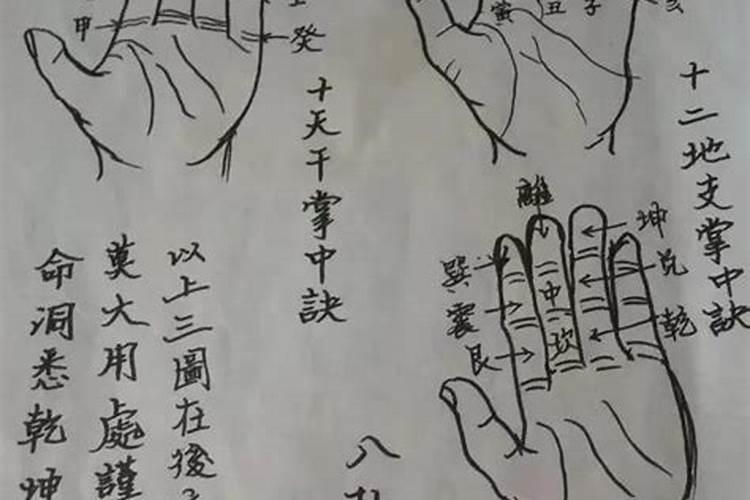 甲
癸
十天干掌中訣
寅
丑
子
亥
十二地支掌中訣
離
巽
震
艮
中
坎
坤
兌
乾
八
以上三圖在後
莫大用處謹
命洞悉乾坤